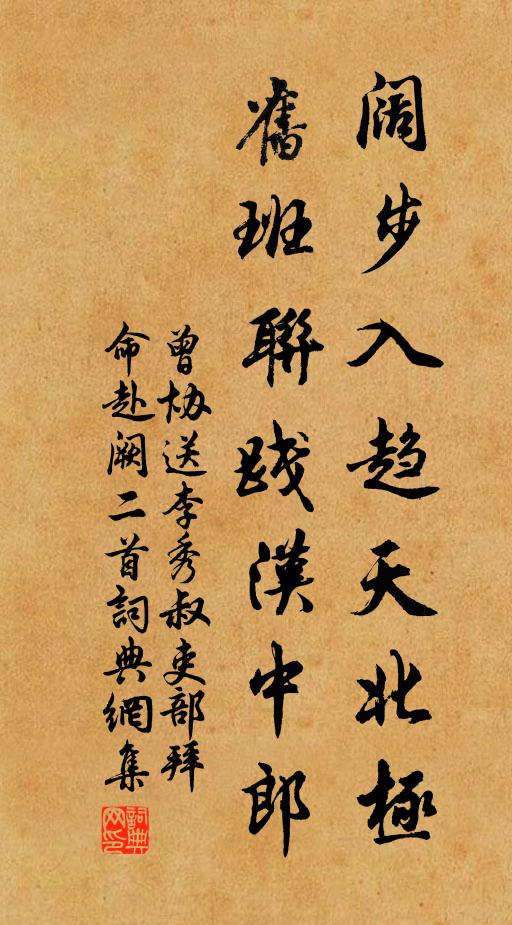 阔步入趋天北极
舊班聯践漢中郎
曾协送李秀叔吏部拜
命赴阙二首詞典網集
詞典网印